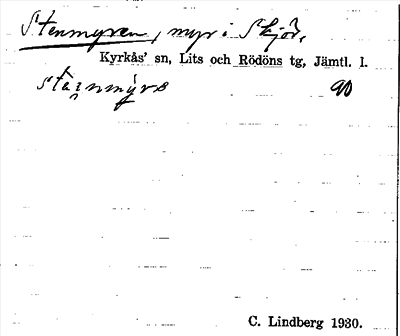 Stenmyren, myr i Skjör.
Kyrkås' sn, Lits och Rödöns tg, Jämtl. l.
stäinmyra 90
C. Lindberg 1930.